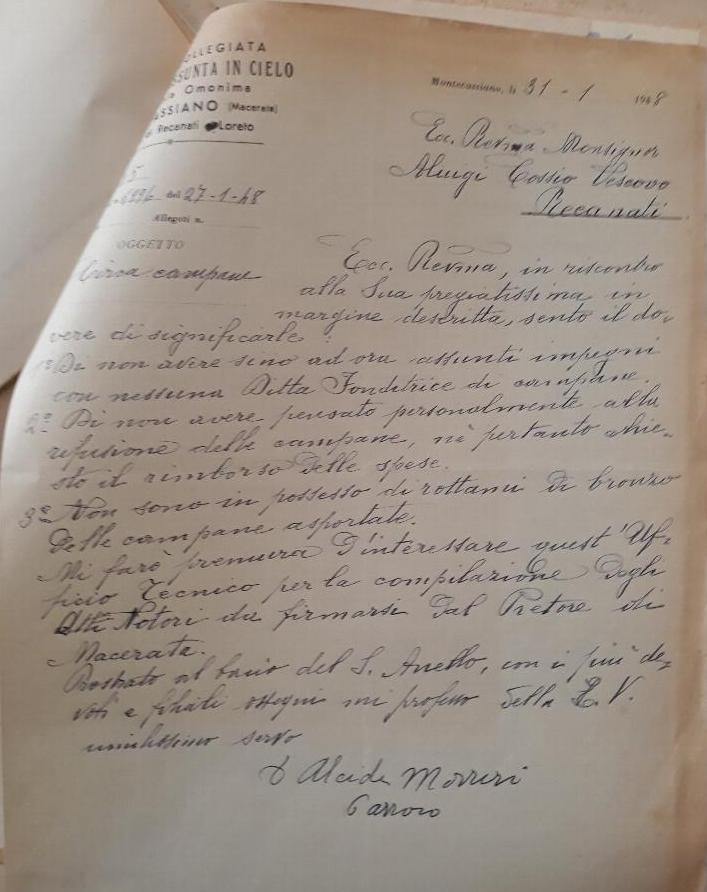 OLLEGIATA
SSUNTA IN CIELO
Omonima
SSIANO (Macerata)
di Recanati e Loreto
Montecassiano, li 31 - 1 1948
Ecc. Revma Monsignor
Aluigi Cossio Vescovo
Recanati
5
1896 del 27-1-48
Allegati n.
OGGETTO
Circa campane
Ecc. Revma, in riscontro
alla Sua pregiatissima in
margine descritta, sento il do-
vere di significarle:
1º Di non avere sino ad ora assunti impegni
con nessuna Ditta Fonditrice di campane.
2º Di non avere pensato personalmente alla
refusione delle campane, nè pertanto chie-
sto il rimborso delle spese.
3º Non sono in possesso di rottami di bronzo
delle campane asportate.
Mi farò premura d'interessare quest'Uf-
ficio Tecnico per la compilazione degli
Atti Notori da firmarsi dal Pretore di
Macerata.
Prostrato al bacio del S. Anello, con i più de-
voti e filiali ossequi mi professo della E. V.
umilissimo servo
D Alcide
Parroco